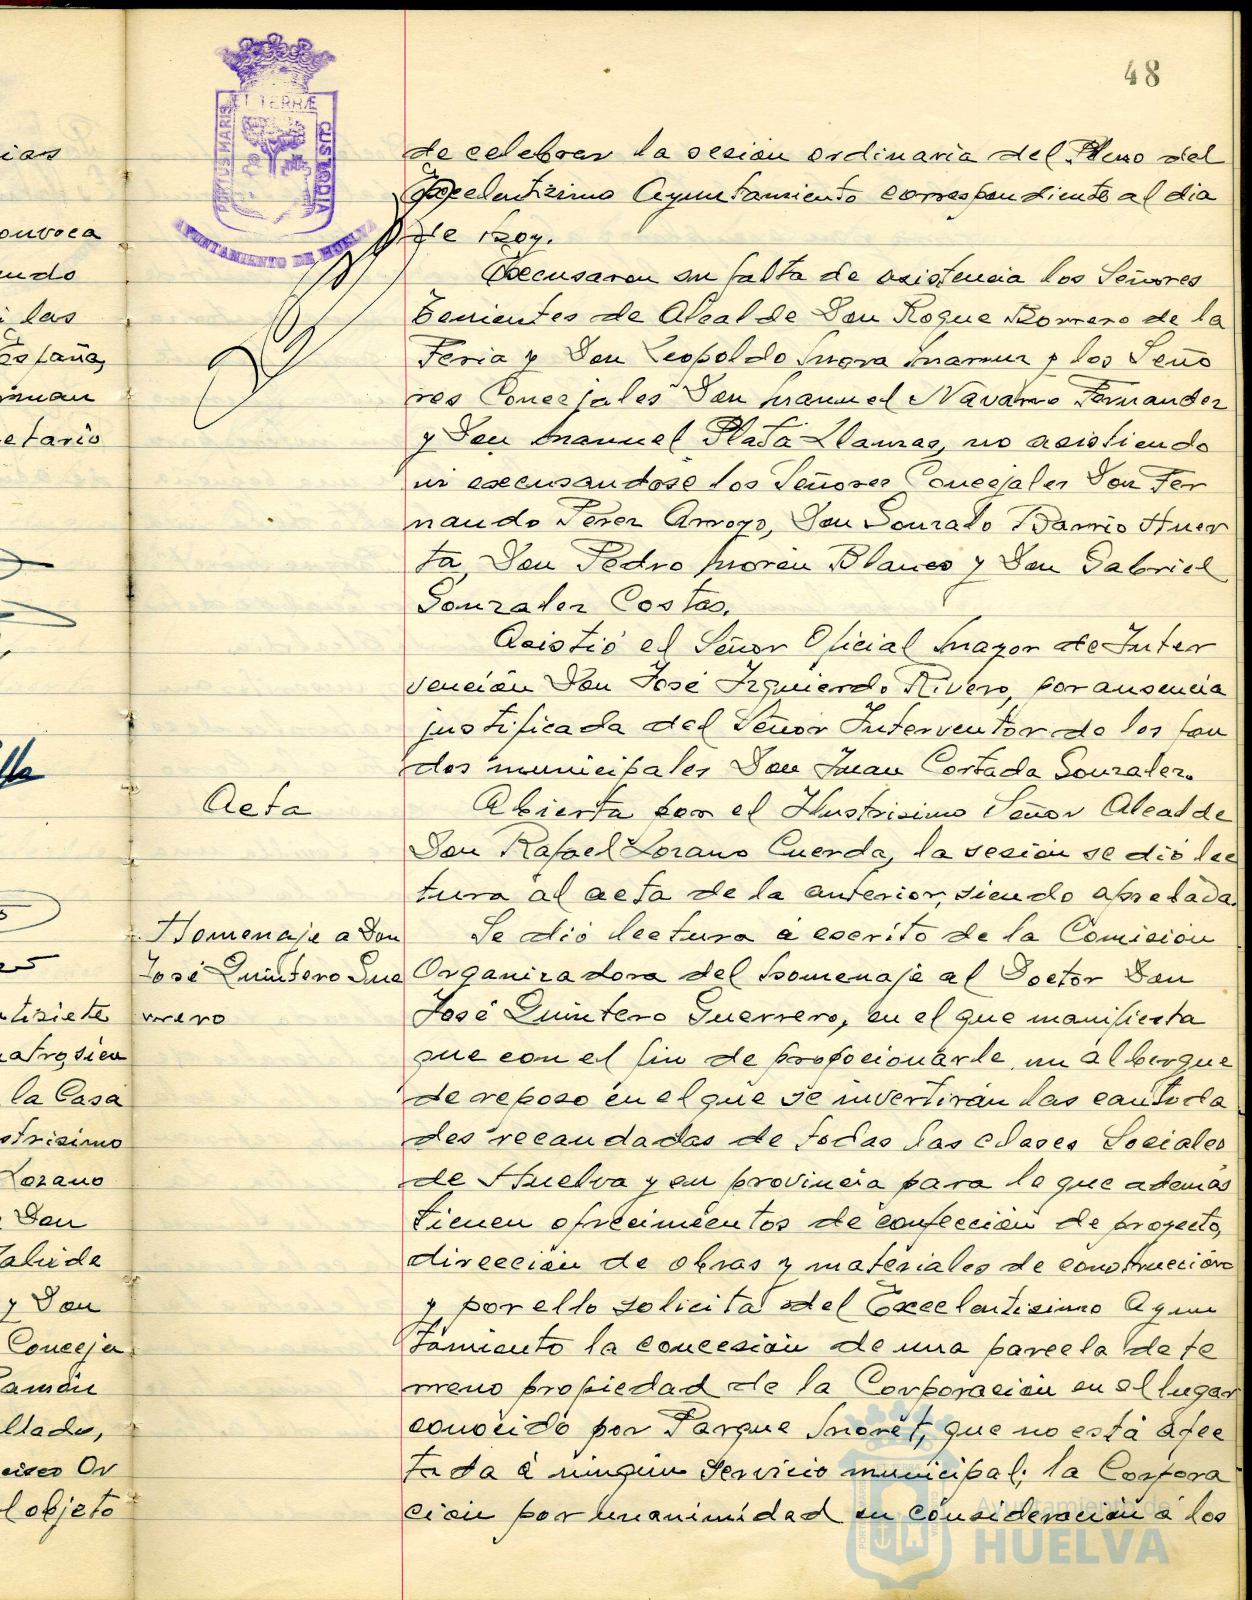 48
PORTUS MARIS
ET TERRÆ
CUSTODIA
AYUNTAMIENTO DE HUELVA
de celebrar la sesión ordinaria del Pleno del
Excelentisimo Ayuntamiento correspondiente al dia
de hoy.
Excusaron su falta de asistencia los Señores
Tenientes de Alcalde Don Roque Borrero de la
Feria y Don Leopoldo Mora y los Seño
res Concejales Don Manuel Navarro Fernandez
y Don Manuel Plata Llamas, no asistiendo
ni excusandose los Señores Concejales Don Fer
nando Perez Arroyo, Don Gonzalo Barrio Huer
ta, Don Pedro Morón Blanco y Don Gabriel
Gonzalez Costas.
Asistió el Señor Oficial Mayor de Inter
vención Don José Izquierdo Rivero, por ausencia
justificada del Señor Interventor de los fon
dos municipales Don Juan Cortada Gonzalez.
Acta
Abierta por el Ilustrisimo Señor Alcalde
Don Rafael Lozano Cuerda, la sesión se dió lec
tura al acta de la anterior, siendo aprobada.
Homenaje a Don
José Quintero Gue
rrero
Se dió lectura á escrito de la Comisión
Organizadora del homenaje al Doctor Don
José Quintero Guerrero, en el que manifiesta
que con el fin de propocionarle un albergue
de reposo en el que se invertirán las cantida
des recaudadas de todas las clases Sociales
de Huelva y su provincia para lo que además
tienen ofrecimientos de confección de proyecto,
dirección de obras y materiales de construcción
y por ello solicita del Excelentisimo Ayun
tamiento la concesión de una parcela de te
rreno propiedad de la Corporación en el lugar
conocido por Parque Moret, que no está afec
tada á ningún servicio municipal; la Corpora
ción por unanimidad en consideración á los
ias
onvoca
ndo
i las
España,
etario
tisiete
la Casa
strisimo
Lozano
Don
y Don
Conceja
Ramón
llado,
l objeto
Ayuntamiento de
HUELVA